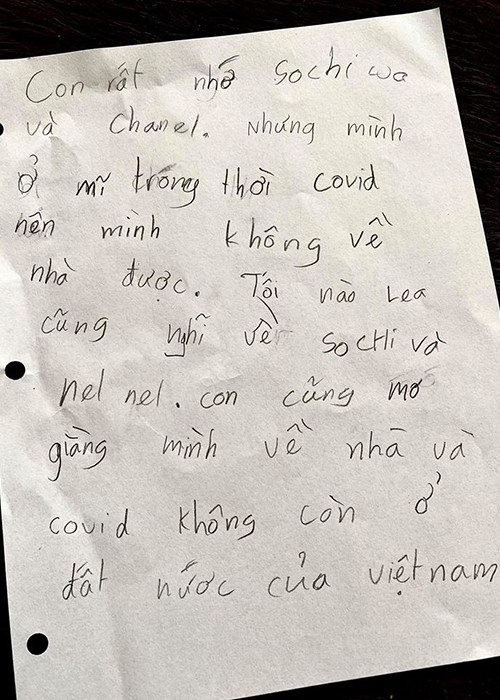 Con rất nhớ Sochi wa
và Chanel. Nhưng mình
ở mĩ trong thời covid
nên mình không về
nhà được. Tối nào Lea
cũng nghĩ về SOCHi và
nel nel. con cũng mơ
giàng mình về nhà và
covid không còn ở
đất nước của việt nam